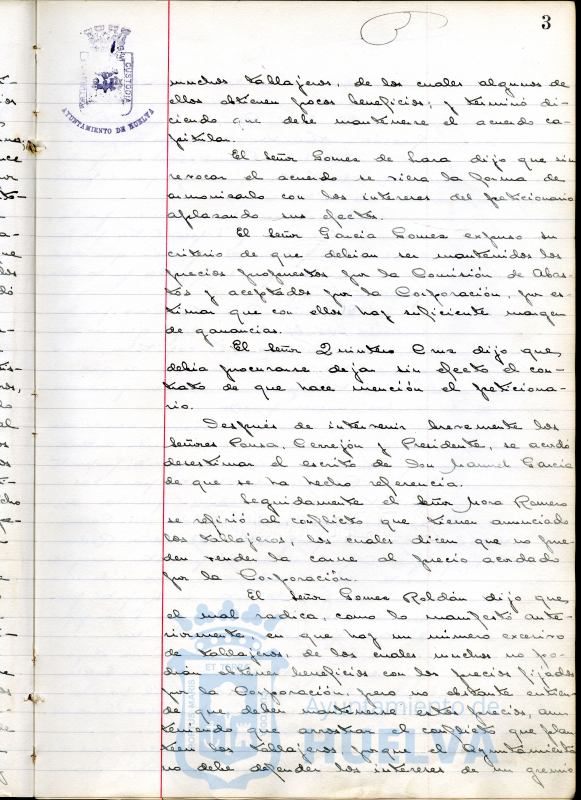 3
CUSTODIA
AYUNTAMIENTO DE HUELVA
muchos tablajeros, de los cuales algunos de
ellos obtienen pocos beneficios; y terminó di-
ciendo que debe mantenerse el acuerdo ca-
pitular.
El Señor Gomez de Lara dijo que sin
revocar el acuerdo se viera la forma de
armonizarlo con los intereses del peticionario
aplazando sus efectos.
El Señor García Gomez expuso su
criterio de que debian ser mantenidos los
precios propuestos por la Comisión de Abas-
tos y aceptados por la Corporación, por es-
timar que con ellos hay suficiente margen
de ganancias.
El Señor Quintero Cruz dijo que
debia procurarse dejar sin efecto el con-
trato de que hace mención el peticiona-
rio.
Después de intervenir brevemente los
Señores Ponsa, Cerrejón y Presidente, se acordó
desestimar el escrito de Don Manuel García
de que se ha hecho referencia.
Seguidamente el Señor Mora Romero
se refirió al conflicto que tienen anunciado
los tablajeros, los cuales dicen que no pue-
den vender la carne al precio acordado
por la Corporación.
El Señor Gomez Roldán dijo que
el mal radica, como lo manifestó ante-
riormente, en que hay un número excesivo
de tablajeros, de los cuales muchos no po-
drán obtener beneficios con los precios fijados
por la Corporación, pero no obstante entien-
de que deben mantenerse estos precios, aun
teniendo que arrostrar el conflicto que plan
teen los tablajeros, porque el Ayuntamiento
no debe defender los intereses de un gremio
Ayuntamiento de
HUELVA